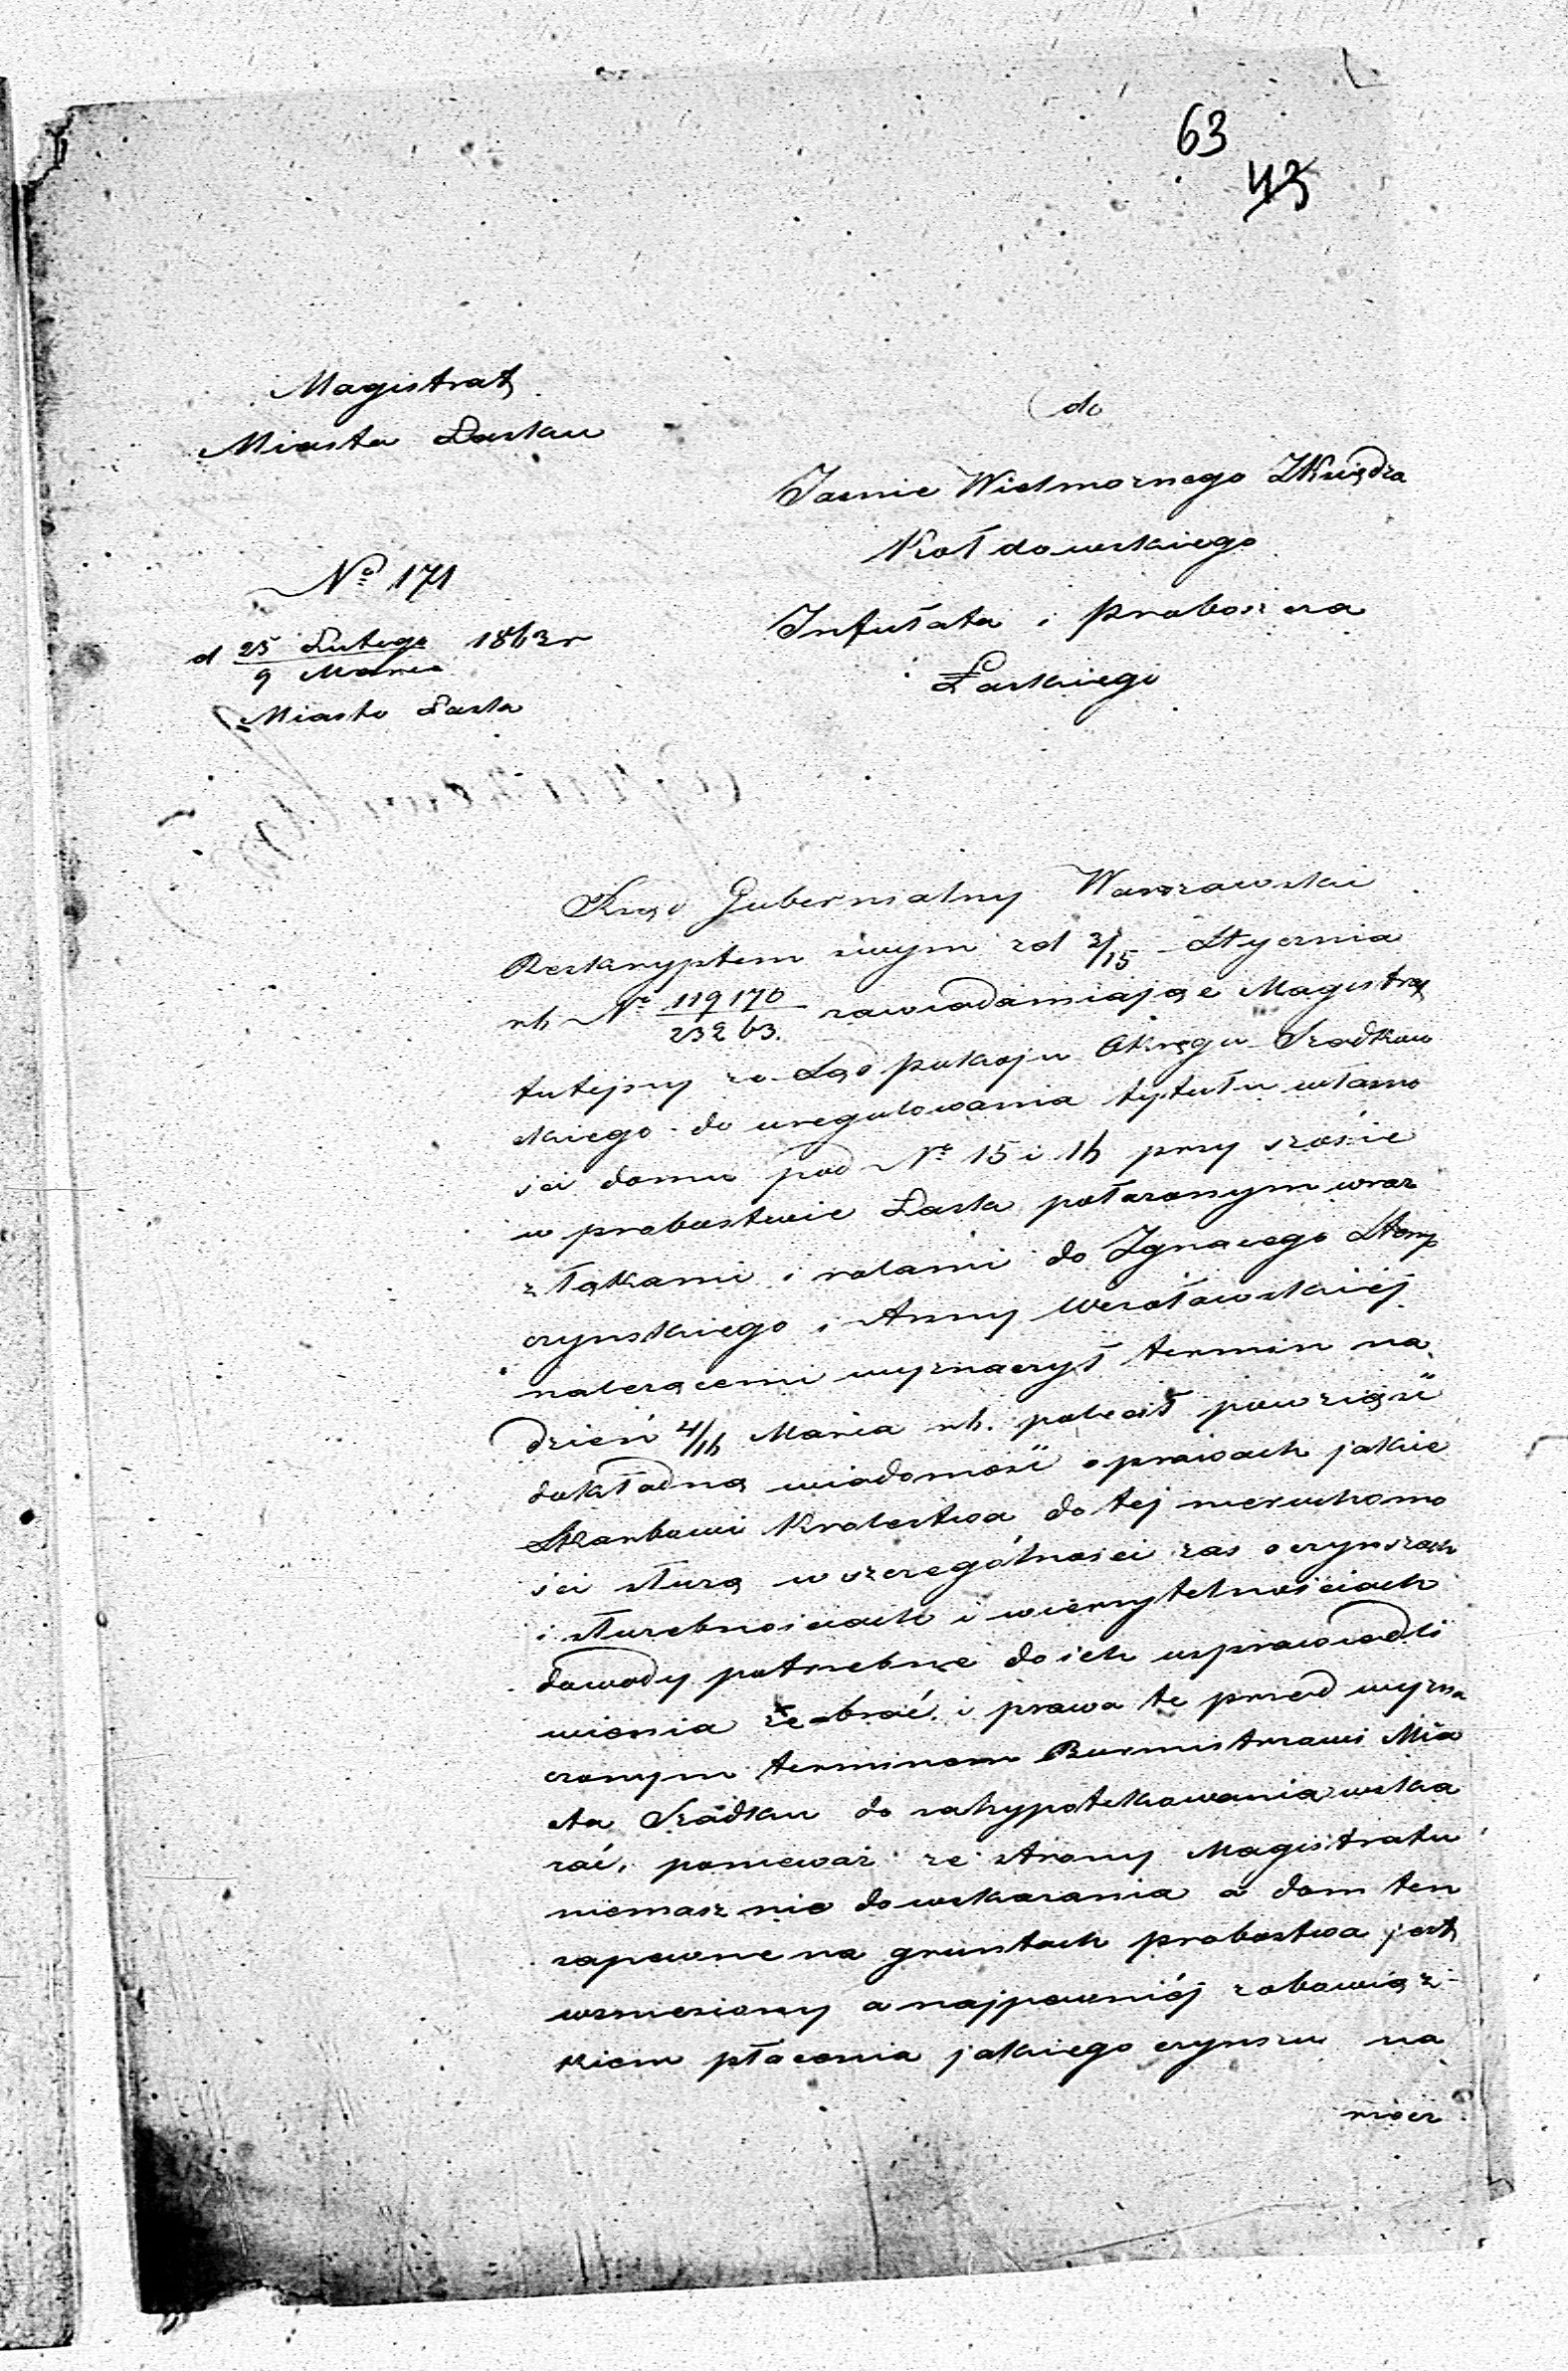 63
43
Magistrat
Miasta Łasku
do
Jaśnie Wielmożnego JKsiędza
Kołdowskiego
Infułata i Proboszcza
Łaskiego
No 171
d 25 Lutego / 9 Marca 1863 r
Miasto Łask
Rząd Gubernialny Warszawski
Reskryptem swym z d 3/15 Stycznia
rb No 119170 / 23263. zawiadamiając Magistrat
tutejszy że Sąd pokoju Okręgu Szadkow
skiego do uregulowania tytułu własno
ści domu pod No 15 i 16 przy szosie
w probostwie Łask położonym wraz
z łąkami i rolami do Ignacego Stomp
czyńskiego i Anny
należącemi wyznaczył termin na
dzień 4/16 Marca rb. polecił powziąść
dokładną wiadomość o prawach jakie
Skarbowi Krolestwa do tej nieruchomo
ści służą w szczególności zas o czynszach
i służebnościach i wierzytelnościach
dowody potrzebne do ich usprawiedli
wienia ze-brać i prawa te przed wyzna
czonym terminem Burmistrzowi Mia
sta Szadku do zahypotekowania wska
zać, ponieważ ze strony Magistratu
niemasz nic do wskazania a dom ten
zapewne na gruntach probostwa jest
wzniesiony a najpewniéj z obowiąz-
kiem płacenia jakiego czynszu na
rzecz